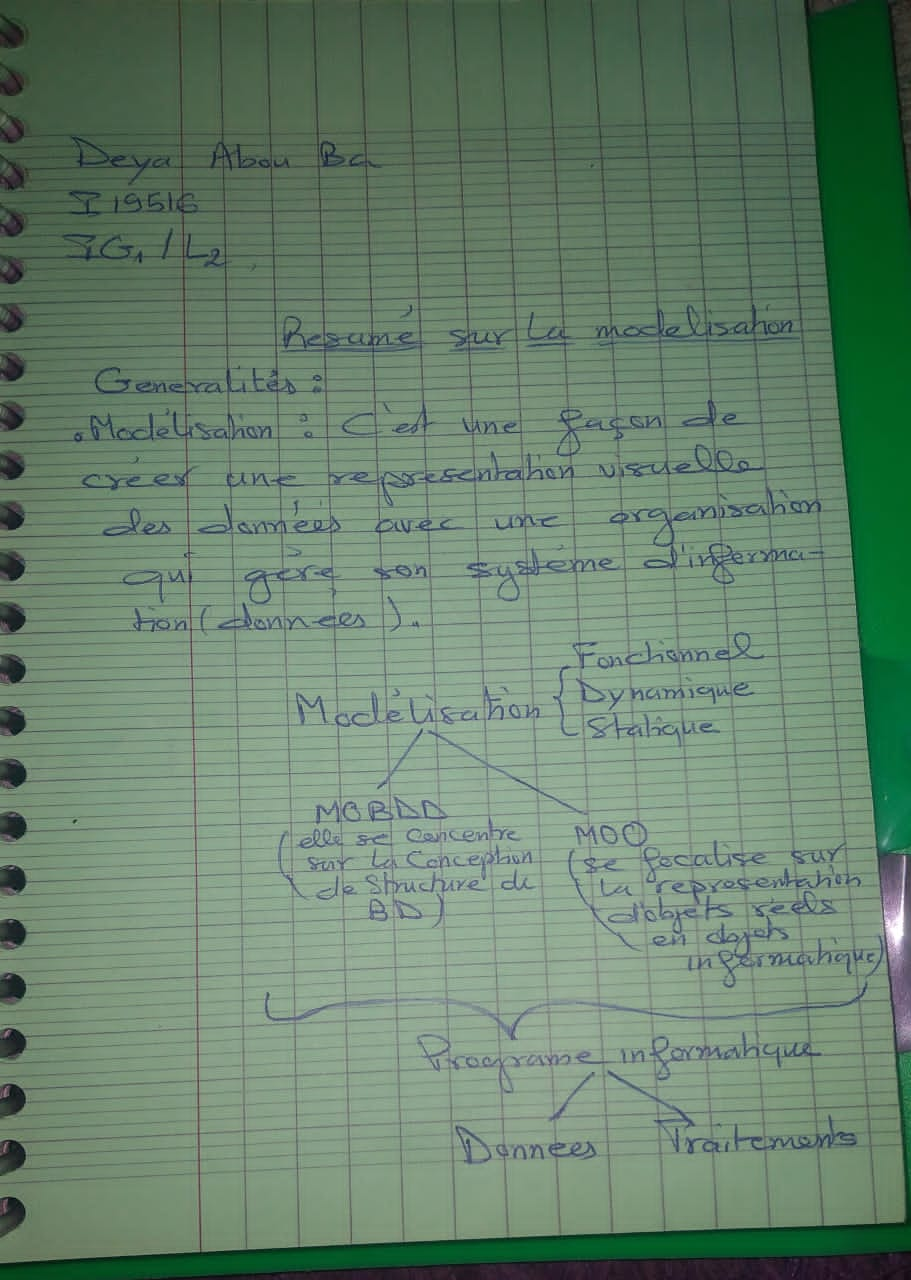 Deya Abou Ba
I19516
IG1 / L2
Resumé sur La modelisation
Generalités :
. Modélisation : C'est une façon de
créer une representation visuelle
des données avec une organisation
qui gère son système d'informa-
tion (données).
Fonctionnel
Modélisation { Dynamique
Statique
MOBDD
(elle se concentre
sur la Conception
de Structure de
BD)
MOO
(se focalise sur
la representation
d'objets réels
en objets
informatique)
Programe informatique
Donnees Traitements